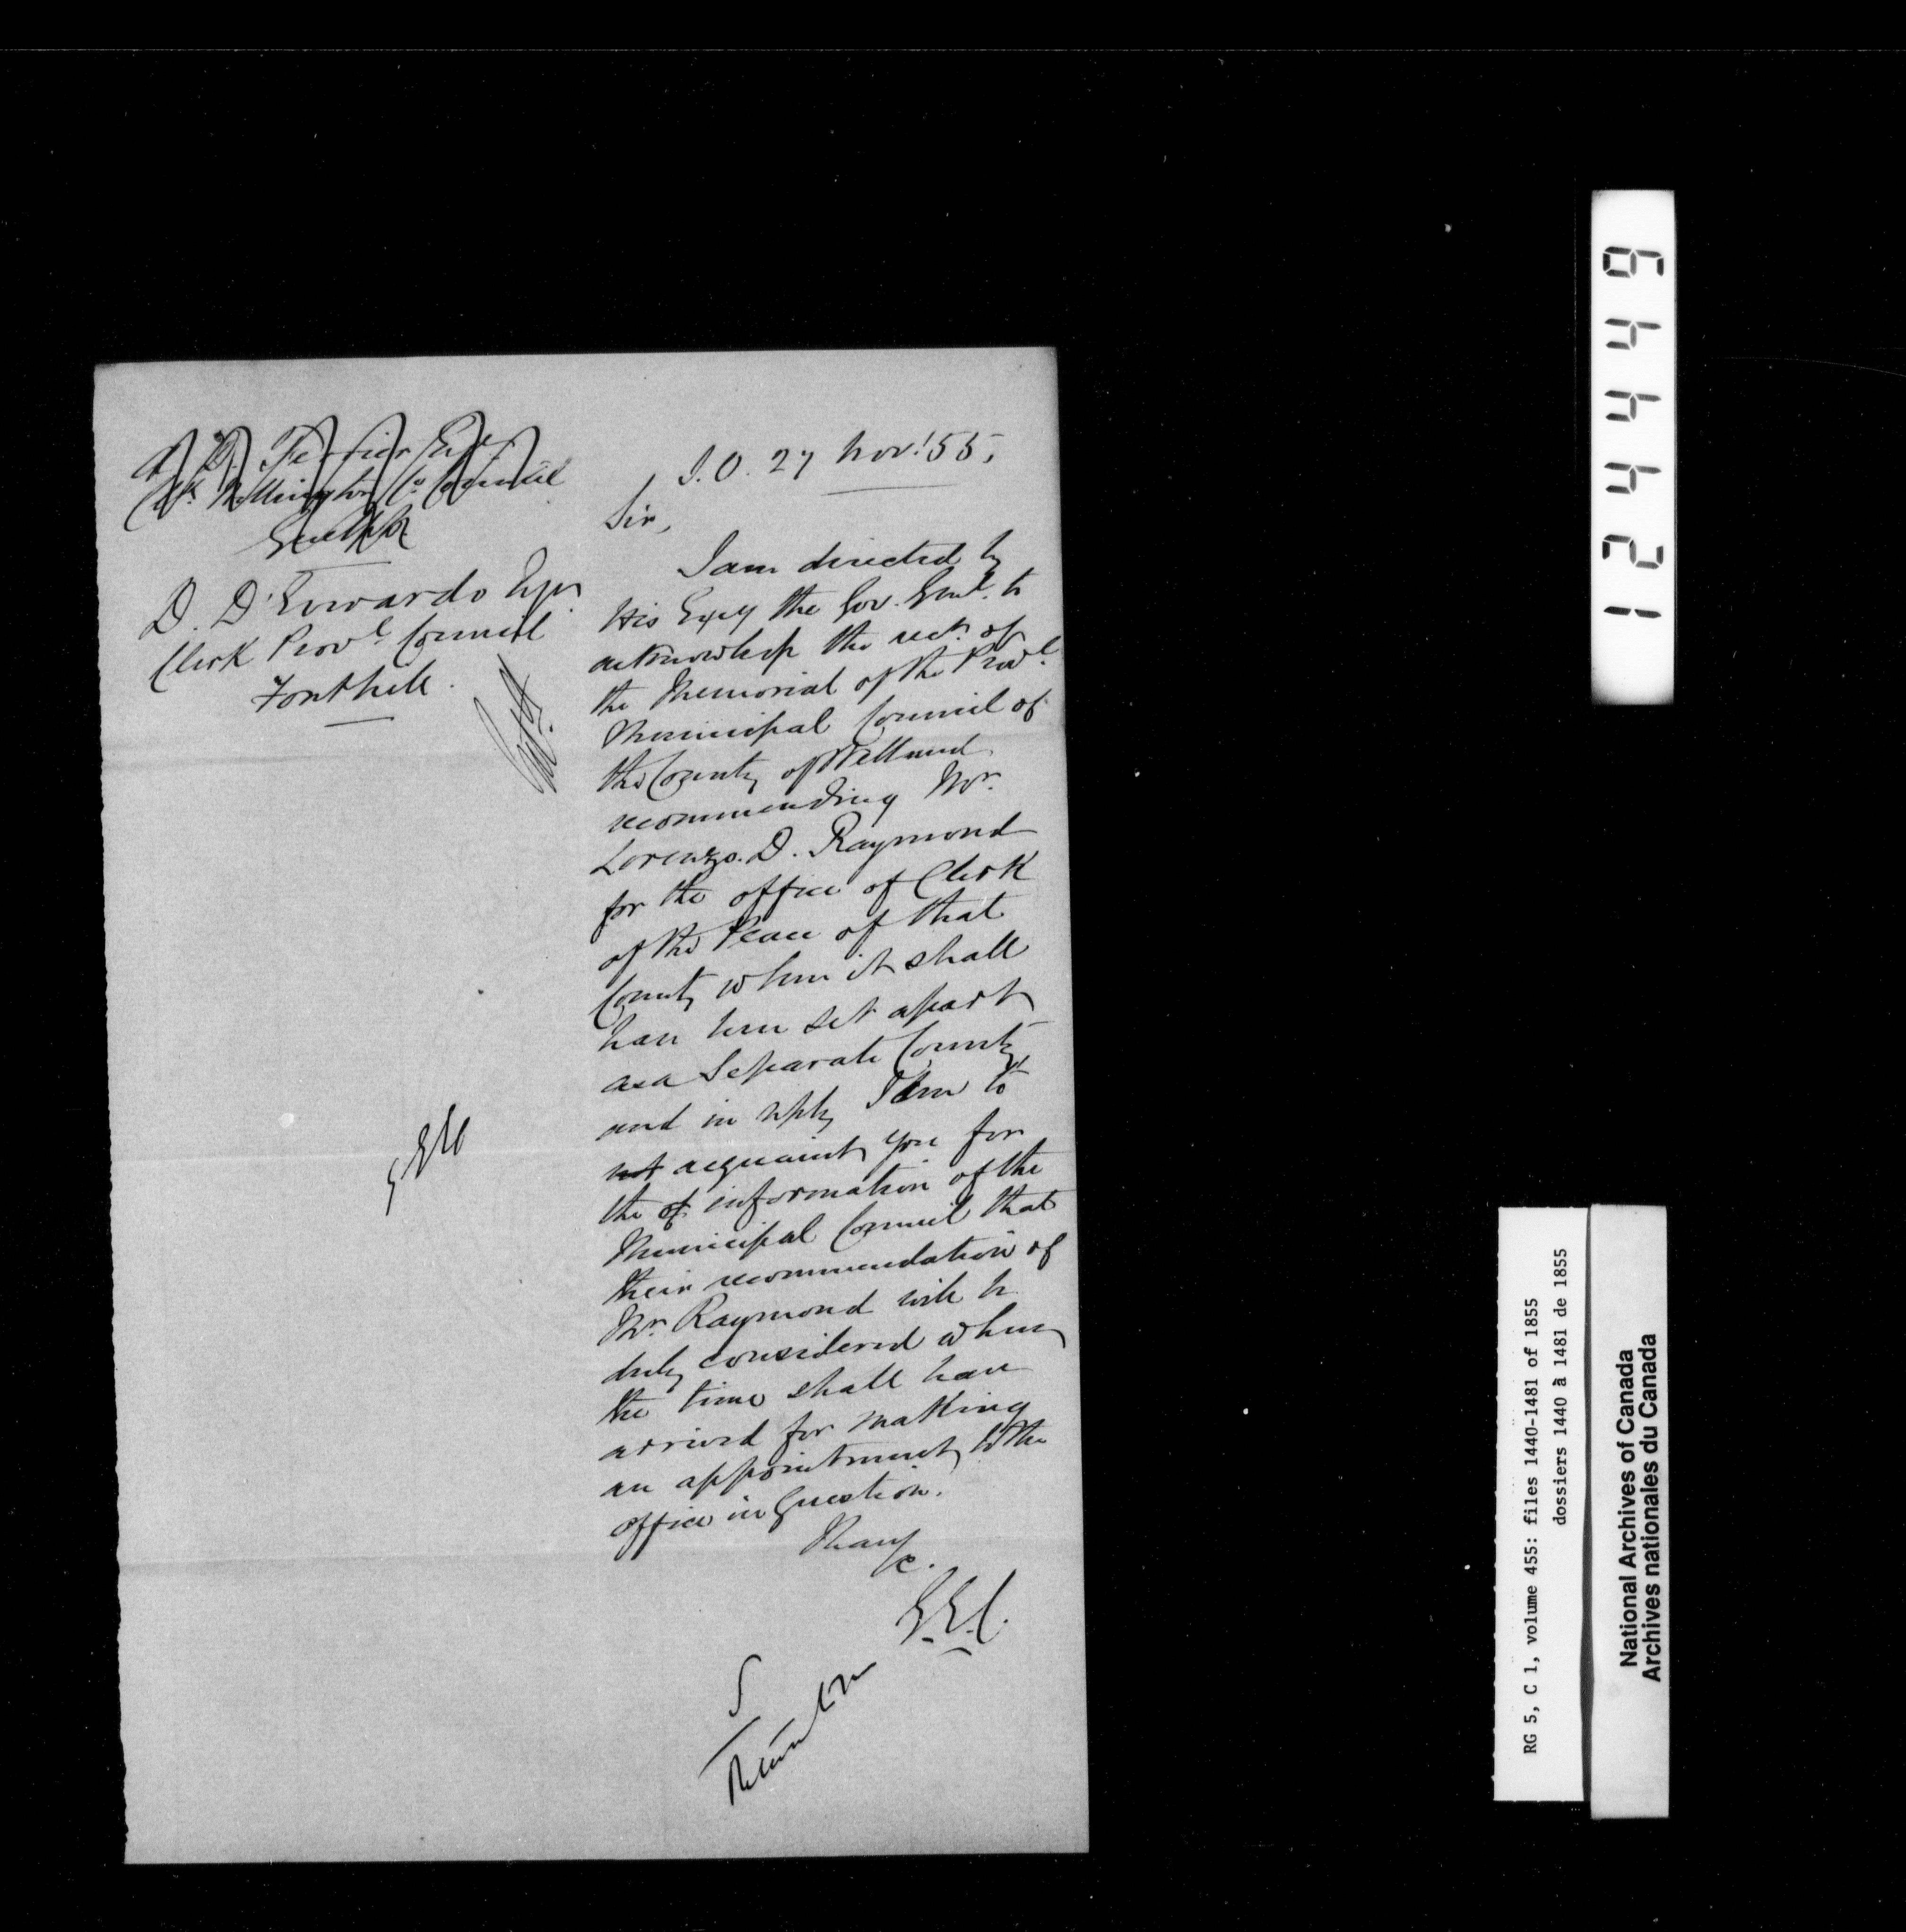 A. D. Ferrier Esqr
Clk. Wellington Co. Council
Guelph
D. D'Everardo Esqr
Clerk Provl. Council
Fonthill.
S.O. 27 Nov. '55,
Sir,
I am directed by
His Excy the Gov. Genl. to
acknowledge the rect. of
the Memorial of the Provl.
Municipal Council of
the County of Welland
recommending Mr.
Lorenzo. D. Raymond
for the office of Clerk
of the Peace of that
County when it shall
have been set apart
as a Separate County
and in reply I am to
not acquaint you for
the of information of the
Municipal Council that
their recommendation of
Mr. Raymond will be
duly considered when
the time shall have
arrived for making
an appointment to the
office in Question.
I have
&c.
G.E.C.
124449
RG 5, C 1, volume 455: files 1440-1481 of 1855
dossiers 1440 à 1481 de 1855
National Archives of Canada
Archives nationales du Canada